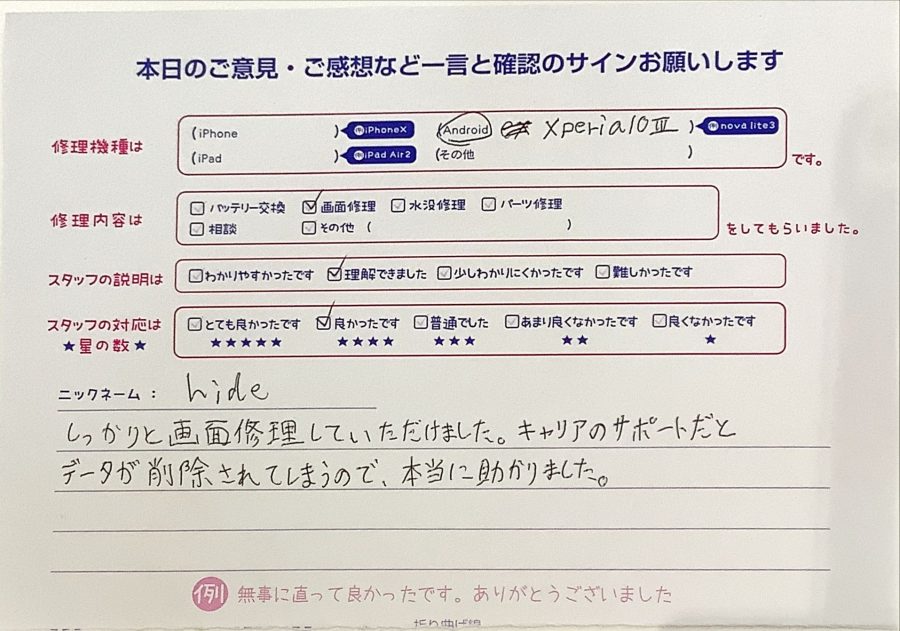 本日のご意見・ご感想など一言と確認のサインお願いします
修理機種は
(iPhone ) 例iPhoneX (Android Xperia10Ⅲ ) 例nova lite3
(iPad ) 例iPad Air2 (その他 ) です。
修理内容は
バッテリー交換 画面修理 水没修理 パーツ修理
相談 その他 ( ) をしてもらいました。
スタッフの説明は わかりやすかったです 理解できました 少しわかりにくかったです 難しかったです
スタッフの対応は とても良かったです 良かったです 普通でした あまり良くなかったです 良くなかったです
★星の数★ ★★★★★ ★★★★ ★★★ ★★ ★
ニックネーム： hide
しっかりと画面修理していただけました。キャリアのサポートだと
データが削除されてしまうので、本当に助かりました。
例 無事に直って良かったです。ありがとうございました